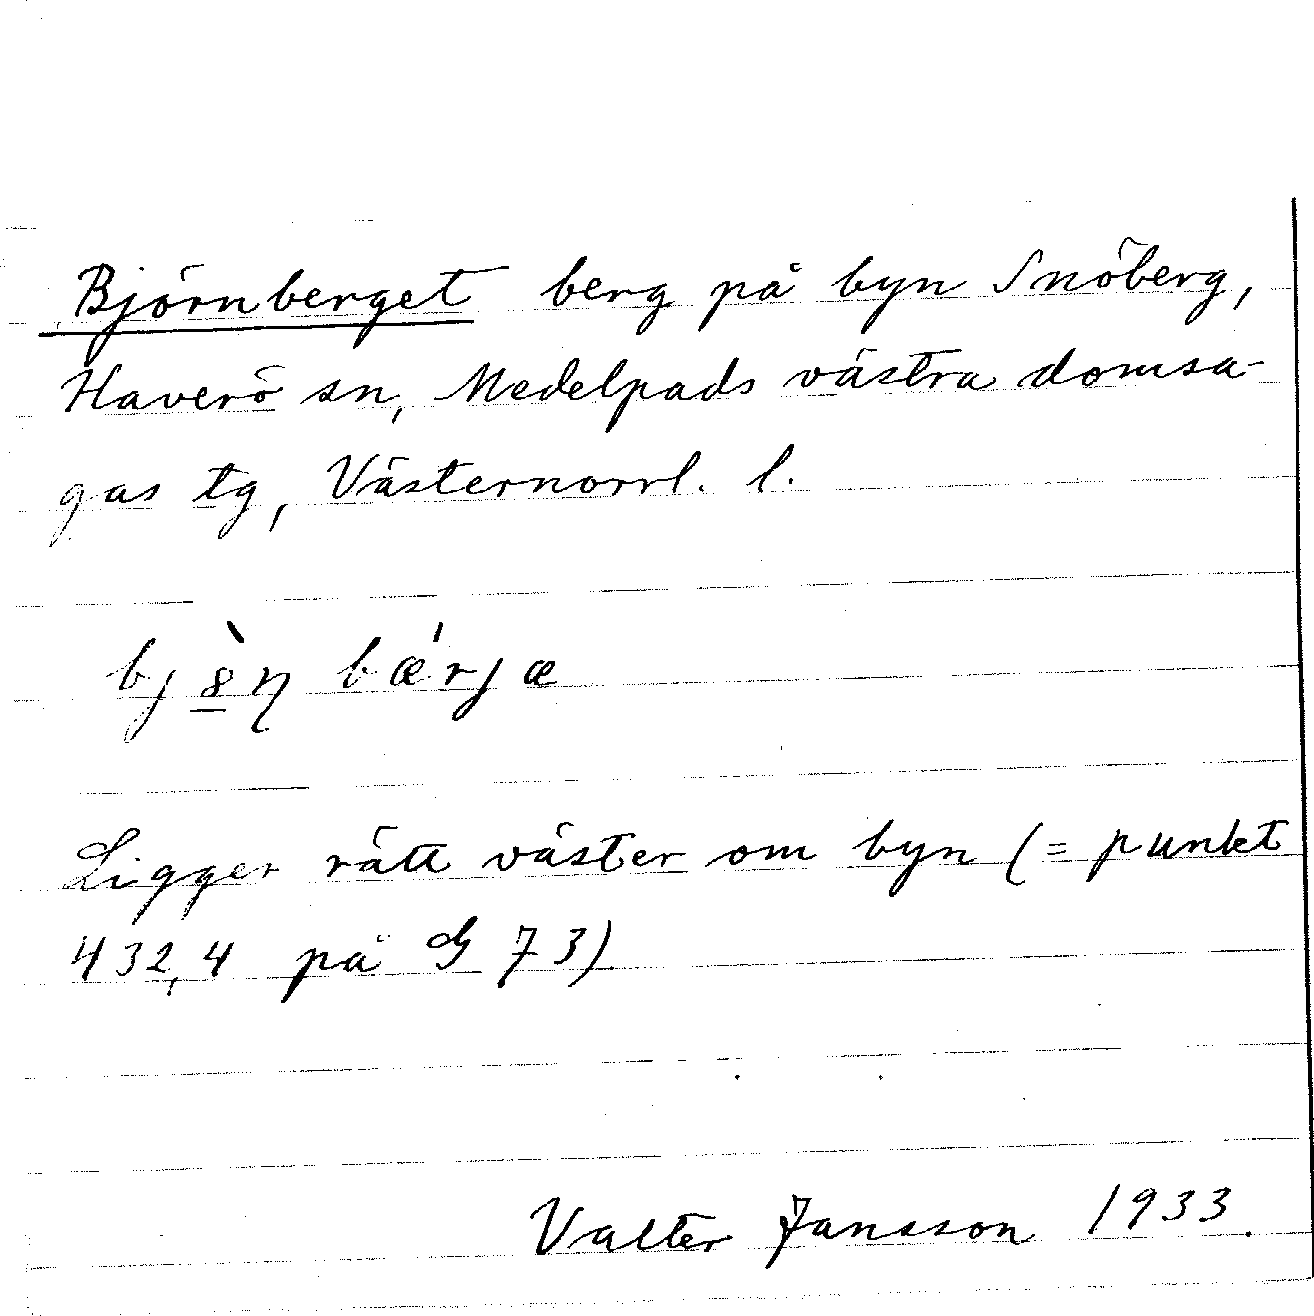 Björnberget berg på byn Snöberg,
Haverö sn, Medelpads västra domsa-
gas tg, Västernorrl. l.
bj8̠̀ɳ bǽrjæ
Ligger rätt väster om byn (= punkt
432,4 på G 73)
Valter Jansson 1933.